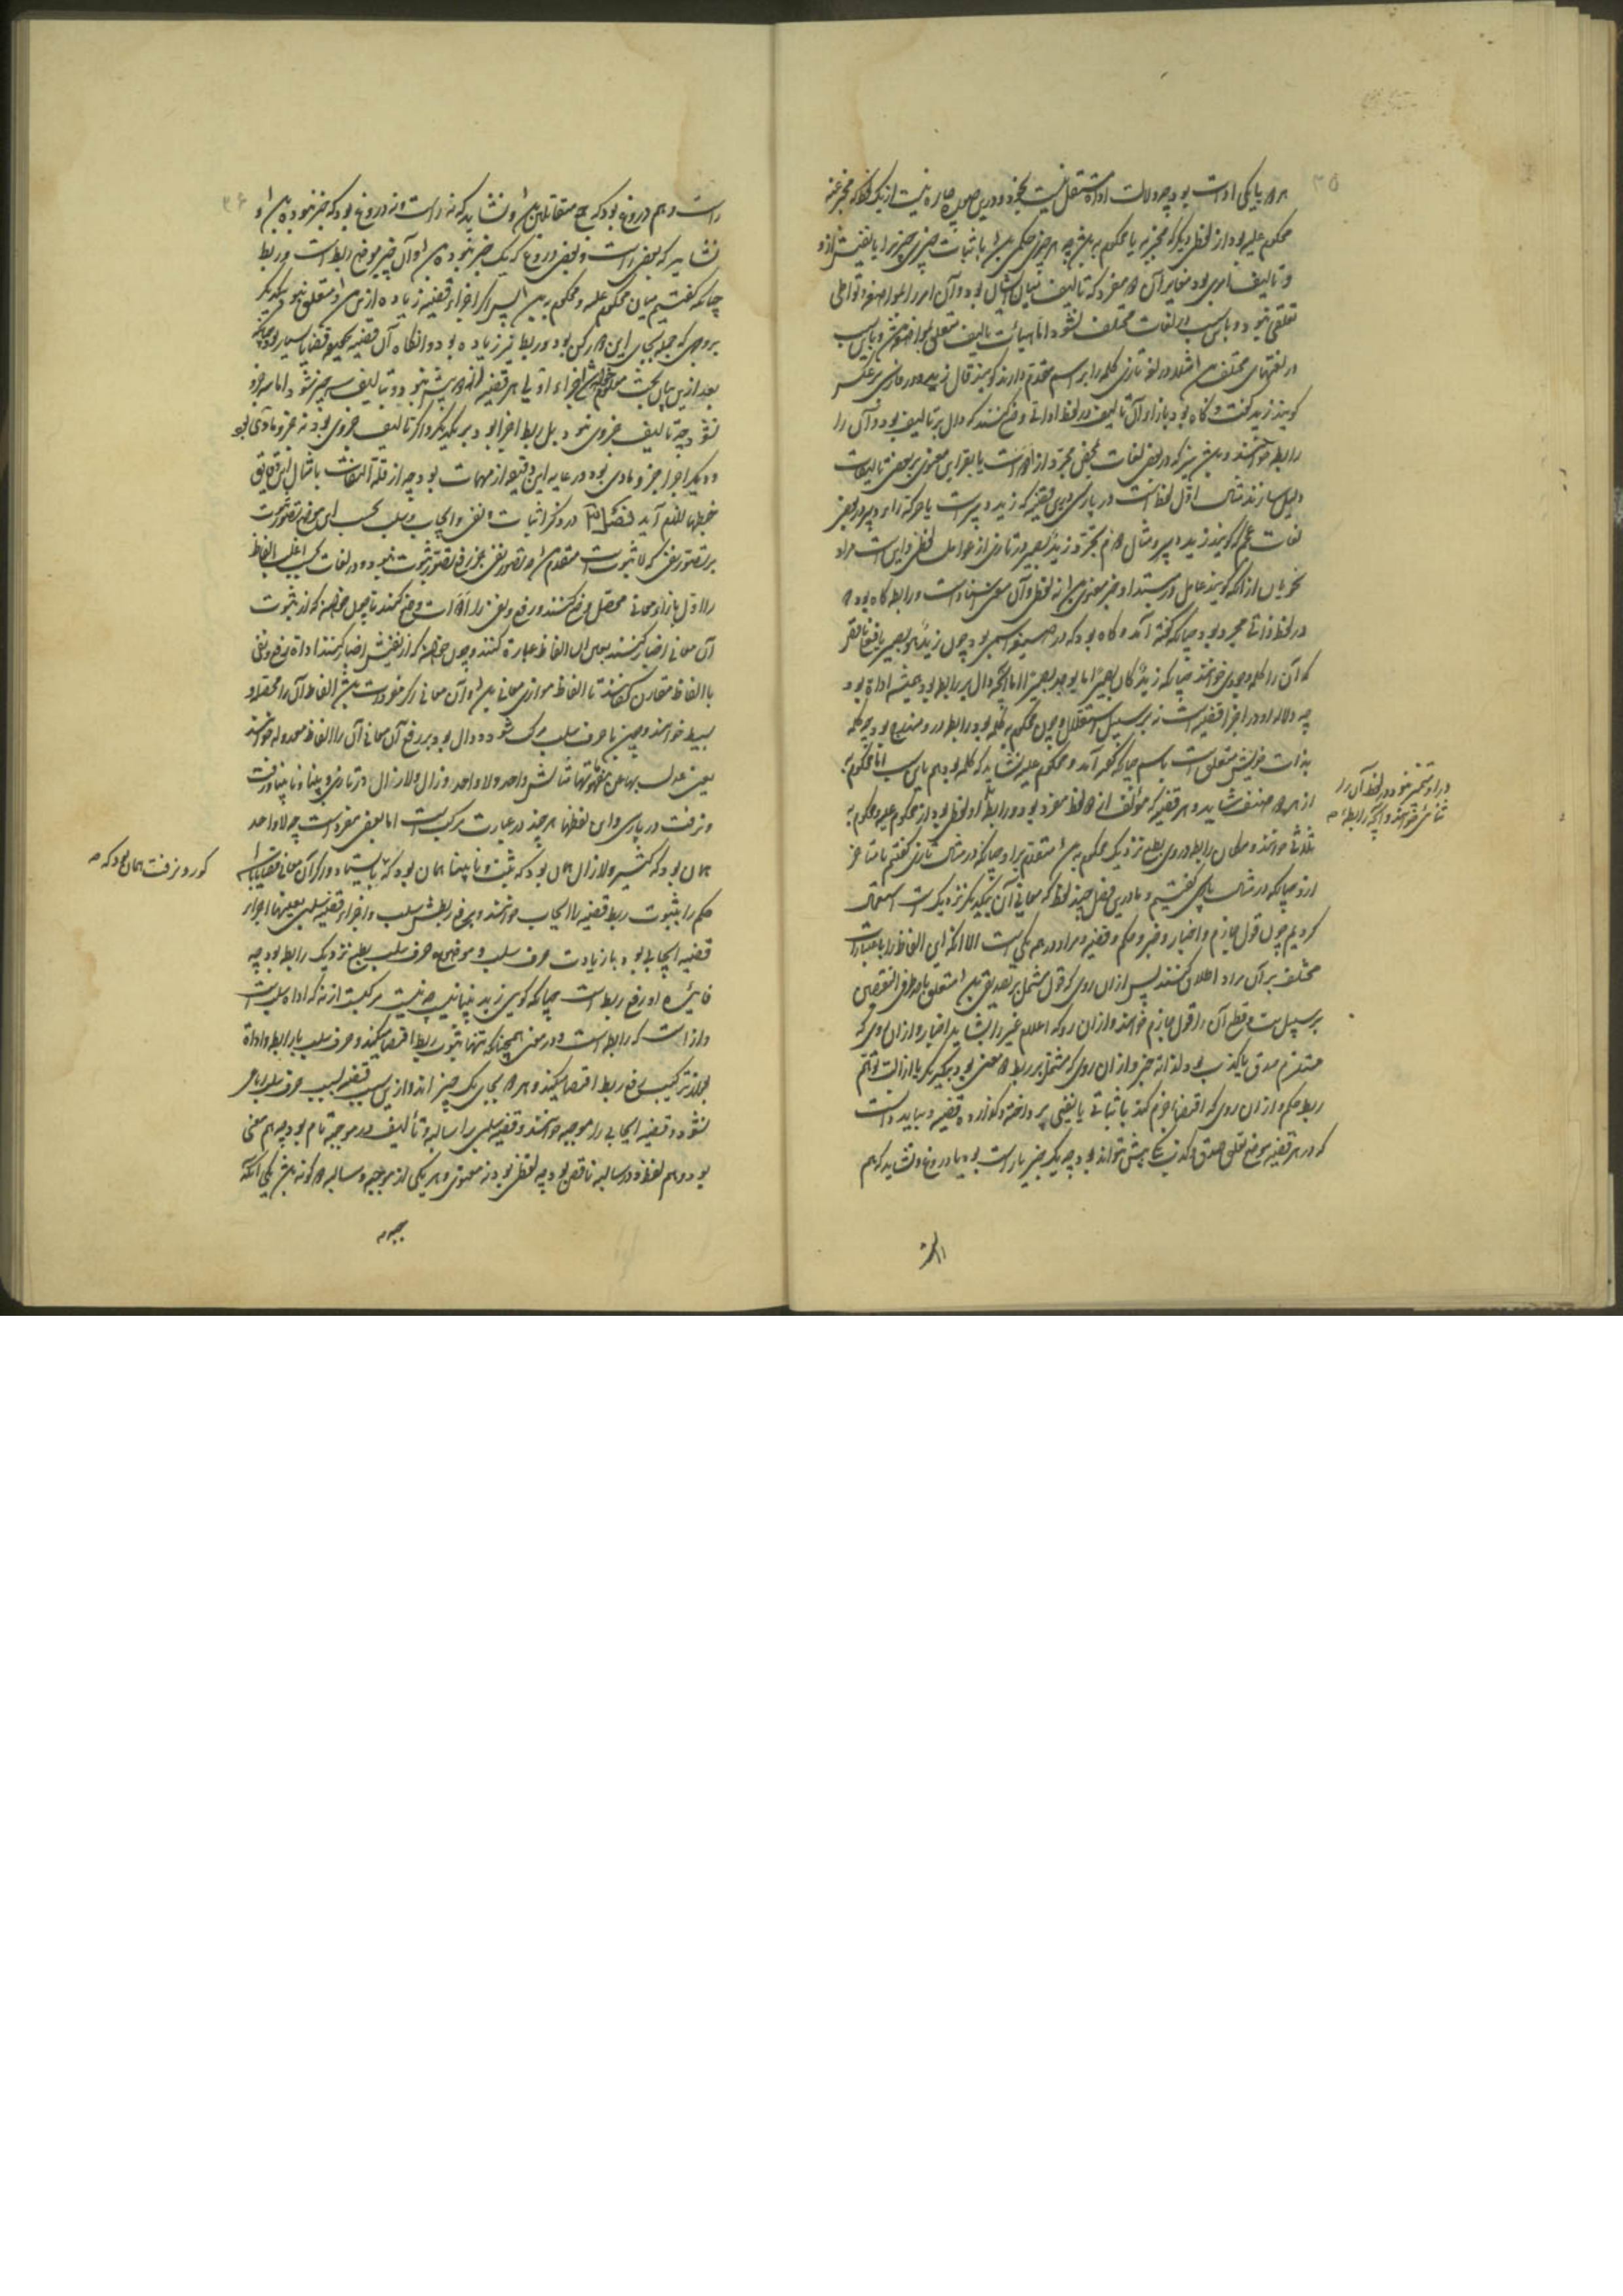 ۳۵
هر دو یا یکی ادات بود چه دلالت اداة مستقل نیست بخود و درین صورت چاره نیست از یک لفظ که مخبر عنه
محکوم علیه بود و از لفظی دیگر که مخبر به یا محکوم به باشد چه هر خبری حکمی باشد باثبات چیزی چیزی را یا نفیش ازو
و تالیف امری بود مغایر آن دو مفرد که تالیف میان ایشان بود و آن امر را بمواضعه و تواطی
تعلقی نبود و باین سبب در لغات مختلف نشود اما هیات تالیف متعلق بمواضعه باشد و باین سبب
در لغتهای مختلف باشد مثلا در لغة تازی کلمه را بر اسم مقدم دارند گویند قال زید و در پارسی بر عکس
گویند زید گفت و گاه بود بازاء آن تالیف در لفظ اداتی وضع کنند که دال بر تالیف بود و آن را
رابطه خوانند و باشد نیز که در بعضی لغات بحقی مجرد از ادات یا بقراین معنوی بر بعضی تالیفات
دلیل سازند مثال اول لفظ است در پارسی درین قضیه که زید دبیرست یا حرکة راء دبیر در بعضی
لغات عجم که گویند زید دبیر و مثال دوم تجرد زیدٌ بصیر در تازی از عوامل لفظی و این است مراد
نحویان از آنکه گویند عامل در مبتدا و خبر معنوی باشد نه لفظی و آن معنی اسناد است و رابطه گاه بود که
در لفظ ذاتی مجرد بود چنانکه گفته آمد و گاه بود که در صیغه اسمی بود چون زید هو بصیر
که آن را کلمه وجودی خوانند چنانکه زیدٌ کان بصیرًا یا یوجد بصیرًا اما آنچه دال بر رابطه بود همیشه اداة بود
چه دلالة او در اجزاء قضیه است نه بر سبیل استقلال و چون محکوم به کلمه بود رابطه درو مندرج بود چه کلمه
بذات خویش متعلق است باسم چنانکه گفته آمد و محکوم علیه نشاید که کلمه بود هم باین سبب اما محکوم به
از هر دو صنف شاید و هر قضیه که مؤلف از دو لفظ مفرد بود و رابطه
ثلاثی خوانند و مکان رابطه در وی بطبع نزدیک محکوم به باشد متقدم برو چنانکه در مثال تازی گفتیم یا متاخر
ازو چنانکه در مثال پارسی گفتیم و ما درین فصل چند لفظ که معانی آن بیکدیگر نزدیکست استعمال
کردیم چون قول جازم و اخبار و خبر و حکم و قضیه و مراد در همه یکی است الا آنکه این الفاظ را باعتبارات
مختلف بر آن مراد اطلاق کنند پس از آن روی که قول مشتمل بر تصدیقی باشد متعلق باحد طرفی النقیض
بر سبیل بت و قطع آن را قول جازم خوانند و از آن رو که اعلام غیر را بشاید اخبار و از آن روی که
مستلزم صدق یا کذب بود لذاته خبر و از آن روی که مشتمل بر ربط دو معنی بود بیکدیگر یا ازالت توهم
ربط حکم و از آن روی که اقتضاء جزم کند باثباتی یا نفیی پرداخته و گزارده قضیه و بباید دانست
که در هر قضیه موضع تعلق صدق و کذب یکی بیش نتواند بود چه یک خبر یا راست بود یا دروغ و نشاید که هم
درو مضمر نبود در لفظ آن را
ثنائی خوانند و آنچه رابطه
راست
۳۶
راست و هم دروغ بود که جمع متقابلین باشد و نشاید که نه راست و نه دروغ بود که خبر نبوده باشد و
نشاید که بعضی راست و بعضی دروغ که یک خبر نبوده باشد و آن خبر موضع ربط است و ربط
چنانکه گفتیم میان محکوم علیه و محکوم به باشد پس اگر اجزاء قضیه زیاده ازین باشد و متعلق نبود بیکدیگر
بر وجهی که جمله بجای این دو رکن بود و ربط نیز زیاده بود و آنگاه آن قضیه بحقیقه قضایا بسیار بود چنانکه
بعد ازین بیان بحث معلوم شود اجزاء اولی هر قضیه از دو بیش نبود و بتالیف سه چیز نشود اما سه جزو
نشود چه تالیف جزوی نبود بل ربط اجزا بود بر یکدیگر و اگر تالیف جزوی بود نه جزو مادی بود
و دیگر اجزا جزو مادی بود و رعایه این دقیقه از مهمات بود چه از قلة التفات بامثال این دقایق
خبطها لازم آید فصل در ذکر اثبات و نفی و ایجاب و سلب بحسب این موضع تصور ثبوت
بر تصور نفی که لا ثبوت است مقدم باشد و تصور نفی بجز رفع تصور ثبوت نبود و در لغات بحسب اغلب الفاظ
را اول بازاء معانی محصل وضع کنند و رفع و نفی را ادات وضع کنند تا چون خواهند که از ثبوت
آن معانی اخبار کنند بهمان الفاظ عبارة کنند و چون خواهند که از نفیش اخبار کنند اداة رفع و نفی
با الفاظ مقارن کنند تا الفاظ موازی معانی باشد و آن معانی اگر مفردات باشد الفاظ آن را محصله و
بسیط خوانند و چون با حرف سلب مرکب شود و دال بود بر رفع آن معانی آن را الفاظ معدوله خوانند
یعنی عدل بها عن مفهوماتها مثالش واحد و لا واحد و زال و لا زال در تازی و بینا و نابینا و رفت
و نرفت در پارسی و این لفظها هر چند در عبارت مرکب است اما بمعنی مفرد است چه لا واحد
همان بود که کثیر و لا زال همان بود که ثبت و نابینا همان بود که
حکم را بثبوت ربط قضیه را ایجاب خوانند و برفع ربطش سلب و اجزاء قضیه سلبی بعینها اجزاء
قضیه ایجابی بود با زیادت حرف سلب و موضع حرف سلب بطبع نزدیک رابطه بود چه
فایده او رفع ربط است چنانکه گویی زید بینا نیست چه نیست مرکبست از نه که اداة سلبست
و از است که رابطه است و در معنی همچنانکه تنها ثبوت ربط اقتضا میکند و حرف سلب با رابطه و اداة
بعد از ترکیب رفع ربط اقتضا میکند و هر دو بجای یک چیز اند و ازین سبب قضیه بسبب حرف سلب رباعی
نشود و قضیه ایجابی را موجبه خوانند و قضیه سلبی را سالبه و تألیف در موجبه تام بود چه هم معنی
بود و هم لفظ و در سالبه ناقص بود چه لفظی بود نه معنوی و هر یکی از موجبه و سالبه دو گونه باشد یکی آنکه
کور و نرفت همان بود که